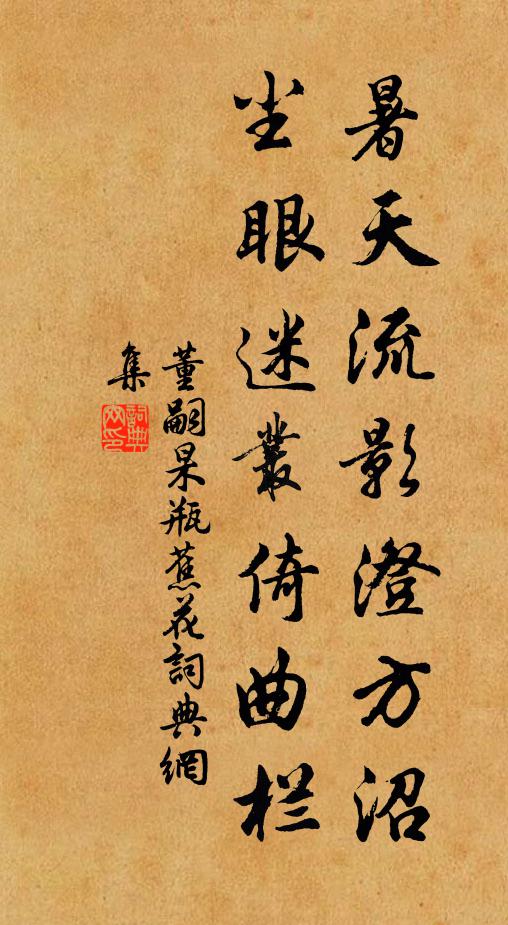 暑天流影澄方沼
尘眼迷叢倚曲栏
董嗣杲瓶蕉花詞典網
集
詞典
网印